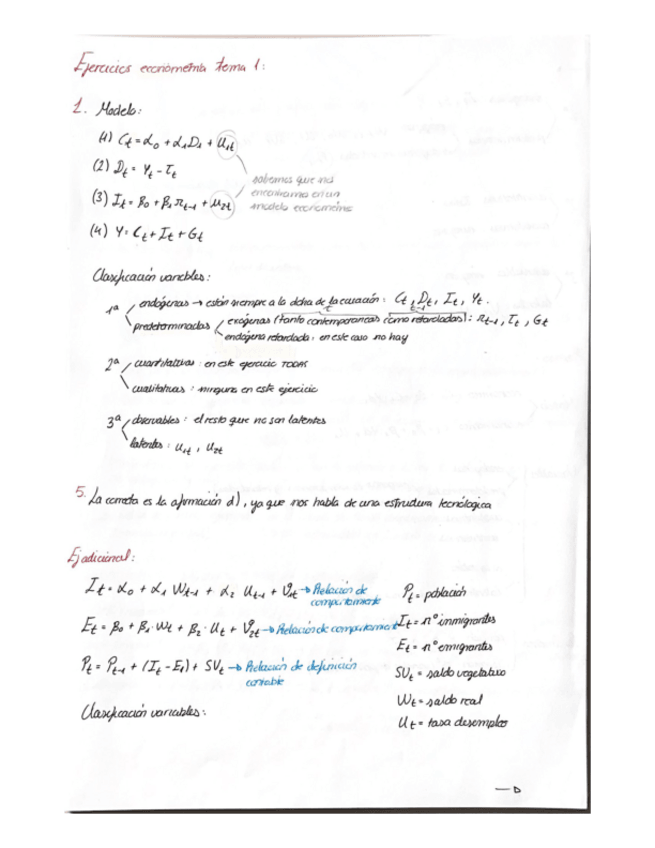 Ejercicios econometría tema 1:
1. Modelo:
(1) Ct = α0 + α1 Dt + U1t
(2) Dt = Yt - Tt
(3) It = β0 + β1 rt-1 + μ2t
(4) Y = Ct + It + Gt
sabemos que nos
encontramos en un
modelo econométrico
Clasificación variables:
1ª endógenas → están siempre a la dcha de la ecuación: Ct, Dt, It, Yt.
predeterminadas exógenas (tanto contemporaneas como retardadas): rt-1, Tt, Gt
endógena retardada: en este caso no hay
2ª cuantitativas: en este ejercicio TODAS
cualitativas: ninguna en este ejercicio
3ª observables: el resto que no son latentes
latentes: U1t, U2t
5. La correcta es la afirmación d), ya que nos habla de una estructura tecnológica
Ej adicional:
It = α0 + α1 Wt-1 + α2 Ut-1 + V1t → Relación de
comportamiento
Et = β0 + β1·Wt + β2·Ut + V2t → Relación de comportamiento
Pt = Pt-1 + (It - Et) + SVt → Relación de definición
contable
Clasificación variables:
Pt = población
It = nº inmigrantes
Et = nº emigrantes
SVt = saldo vegetativo
Wt = saldo real
Ut = tasa desempleo